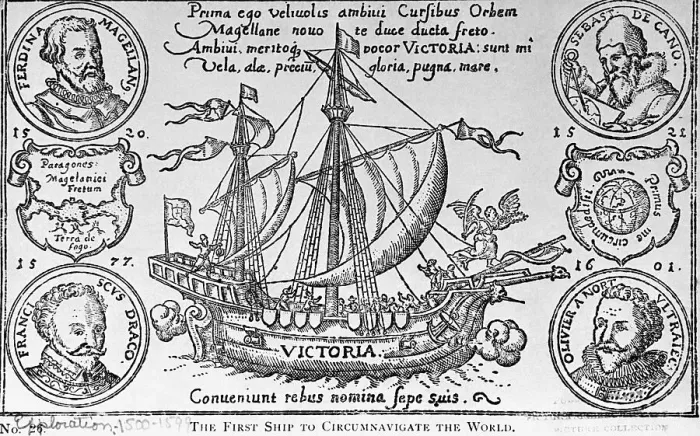 Prima ego velivolis ambivi Cursibus Orbem
Magellane novo te duce ducta freto.
Ambivi, meritoq₃ vocor VICTORIA: sunt mi
Vela, alæ, preciū, gloria, pugna, mare.
FERDINA MAGELLANꝰ
SEBAST. DE CANO.
15 20.
15 21
Patagones:
Magelanici
Fretum
Terra de
fogo.
Primus me circumdedisti
15 77.
16 01.
FRANCISCVS DRACO.
OLIVIER A NORT VLTRAIEC:
VICTORIA.
Conveniunt rebus nomina sepe suis.
No. 29.
Exploration - 1500-1599
THE FIRST SHIP TO CIRCUMNAVIGATE THE WORLD.
PICTURE COLLECTION